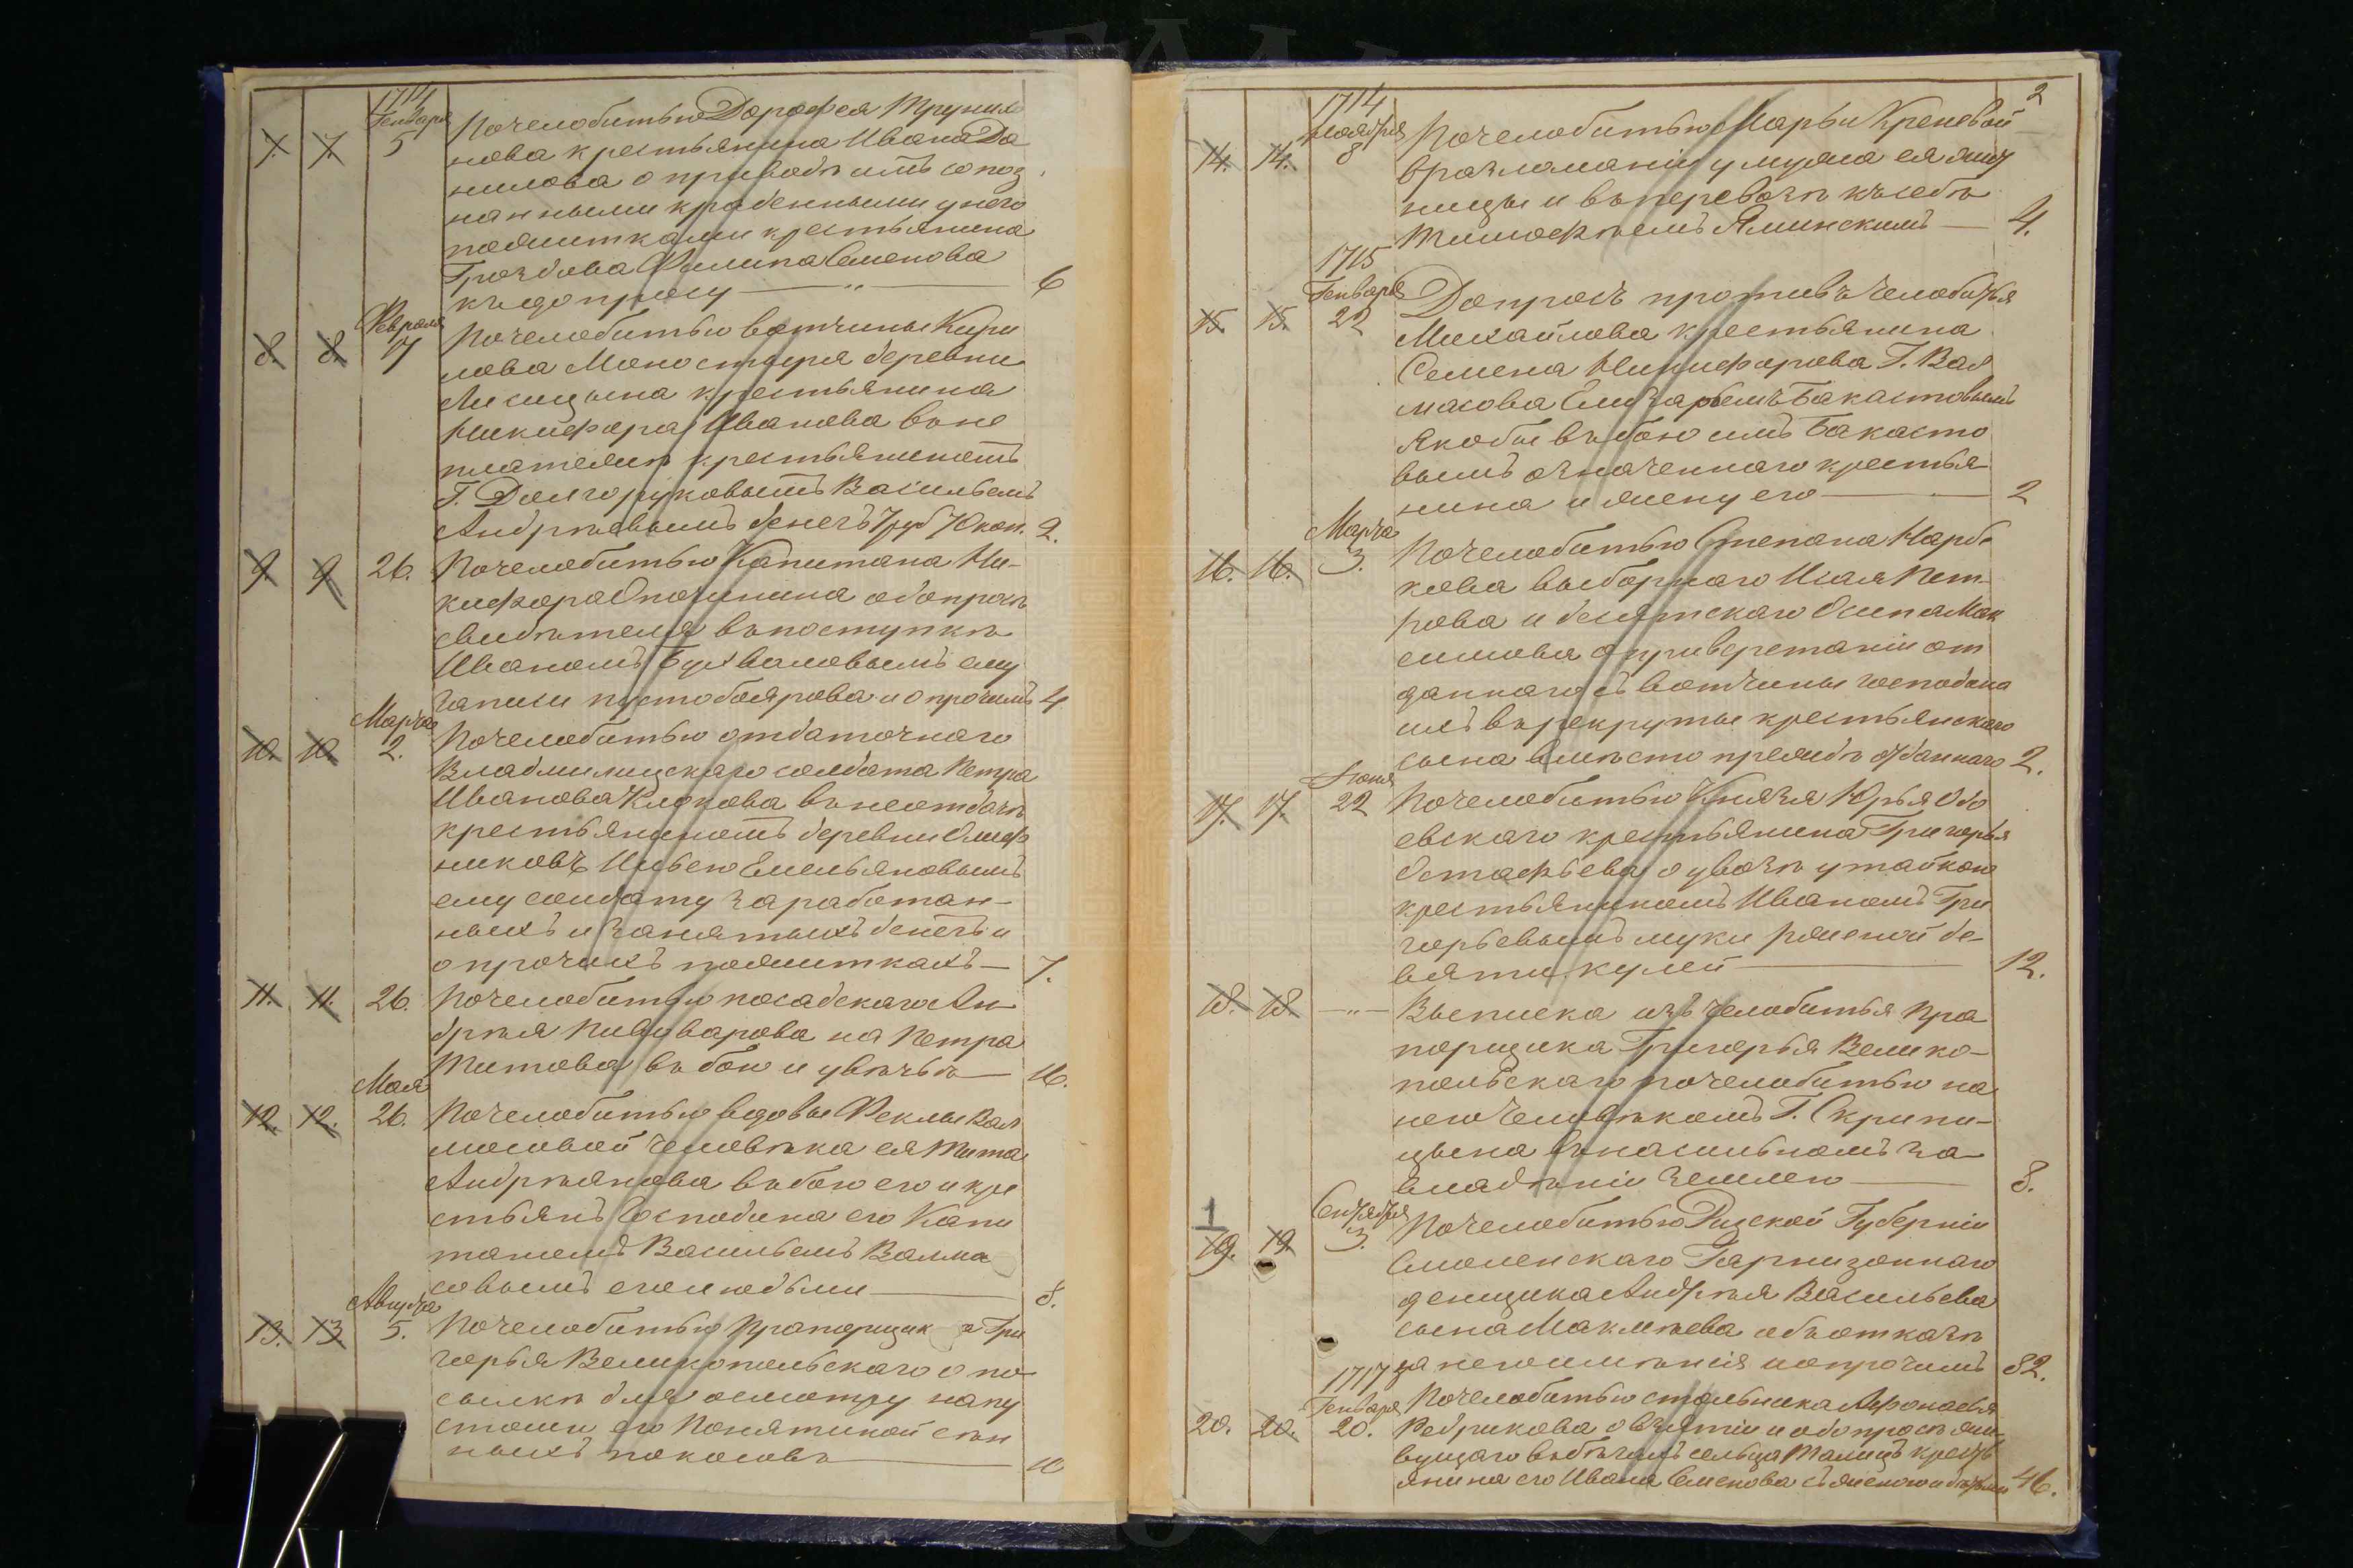 1714
Генваря
7. 7. 5 По челобитью Дорофея Труни
нова крестьянина Ивана Да
нилова о приводѣ имъ со поз
нанными краденными у него
пожитками крестьянина
Грозбова Филипа Семенова
къ допросу — " — 6
Февраля
8. 8. 17 По челобитью вотчины Кири
лова Монастыря деревни
Лисицына крестьянина
Никифора Иванова въ не
платежѣ крестьяниномъ
Г. Долгоруковымъ Васильемъ
Андрѣевымъ денегъ 7 руб 70 коп. 2.
9. 9. 26. По челобитью Капитана Ни-
кифора Опочинина о допросѣ
свидѣтеля въ поступкѣ
Иваномъ Бухваловымъ ему
записи пустобоярова и о прочимъ 4
Марта
10. 10. 2. По челобитью отдаточнаго
Владмилицскаго солдата Петра
Иванова Клокова въ неотдачѣ
крестьяниномъ деревни Олиф
никовъ Ильею Емельяновымъ
ему солдату заработан-
ныхъ и занятыхъ денегъ и
о прочихъ пожиткахъ — 7.
11. 11. 26. По челобитью посадскаго Ан
дрѣя Пивоварова на Петра
Титова въ бою и увѣчьѣ — 16.
Мая
12. 12. 26. По челобитью вдовы Феклы Вал
масовой человѣка ея Тита
Андрѣянова въ бою его и кре
стьянъ Господина его Капи
таномъ Васильемъ Валма
совымъ его людьми — 8.
Августа
13. 13. 5. По челобитью Прапорщика Гри
горья Великопольскаго о по
сылкѣ для осмотру на пу
стоши его Понятиной сѣн
ныхъ покосовъ — 10
2
1714
Ноября
14. 14. 8 По челобитью Марьи Креневой
в разломаніи у мужа ея жит
ницы и въ перевозѣ къ себѣ
Тимофѣемъ Яминскимъ — 4.
1715
Генваря
15. 15. 22 Допросъ противъ челобитья
Михайлова крестьянина
Семена Никифорова Г. Вал
масова Елизарьемъ Бакастовымъ
якобы въ бою имъ Бакасто
вымъ означеннаго крестья
нина и жену его — 2
Марта
16. 16. 3. По челобитью Степана Нарбе
кова выборнаго Исая Пет-
рова и десятскаго Осипа Мак
симова о приверстаніи от
даннаго съ вотчины господина
ихъ въ рекруты крестьянскаго
сына вмѣсто прежде отданнаго 2.
Іюня
17. 17. 22 По челобитью Князя Юрья Одо
евскаго крестьянина Григорья
Остафьева о увозѣ утайкою
крестьяниномъ Иваномъ Гри
горьевымъ муки ржаной де-
вяти кулей — 12.
18. 18. — " — Выписка изъ челобитья Пра
порщика Григорья Велико-
польскаго по челобитью на
него человѣкомъ Г. Скрипи-
цына въ насильномъ за
владѣніи землею — 8.
1
Сентября
19. 19. 3. По челобитью Рижской Губерніи
Смоленскаго Гарнизоннаго
денщика Андрѣя Васильева
сына Маклѣева объ отказѣ
за него имѣнія и о прочимъ 82.
1717
Генваря
20. 20. 20. По челобитью стольника Афонасья
Редрикова о взятіи и о допросѣ жи-
вущаго въ бѣгахъ сельца Талицъ кресть
янина его Ивана Семенова съ женою и дѣтьми 46.